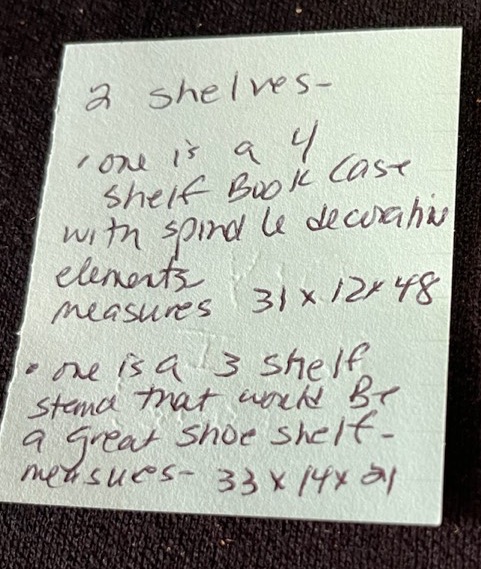 2 shelves-
• one is a 4
shelf Book Case
with spindle decorative
elements
measures 31 x 12 x 48
• one is a 3 shelf
stand that would Be
a great shoe shelf-
measures- 33 x 14 x 21